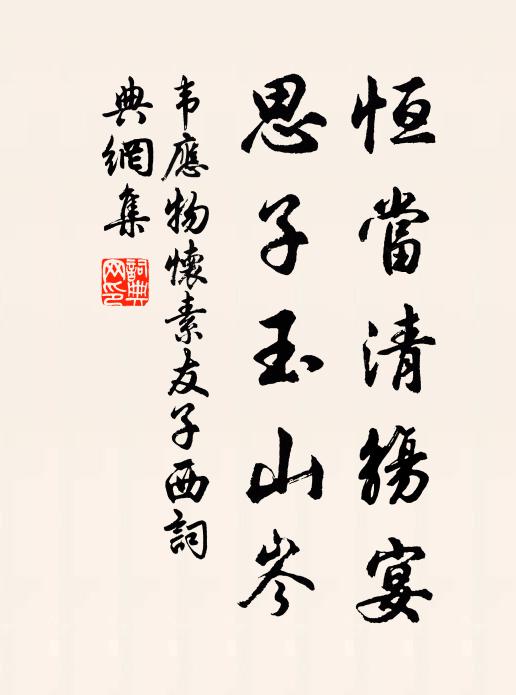 恒當清觴宴
思子玉山岑
韦應物懷素友子西詞
典網集
詞典
网印